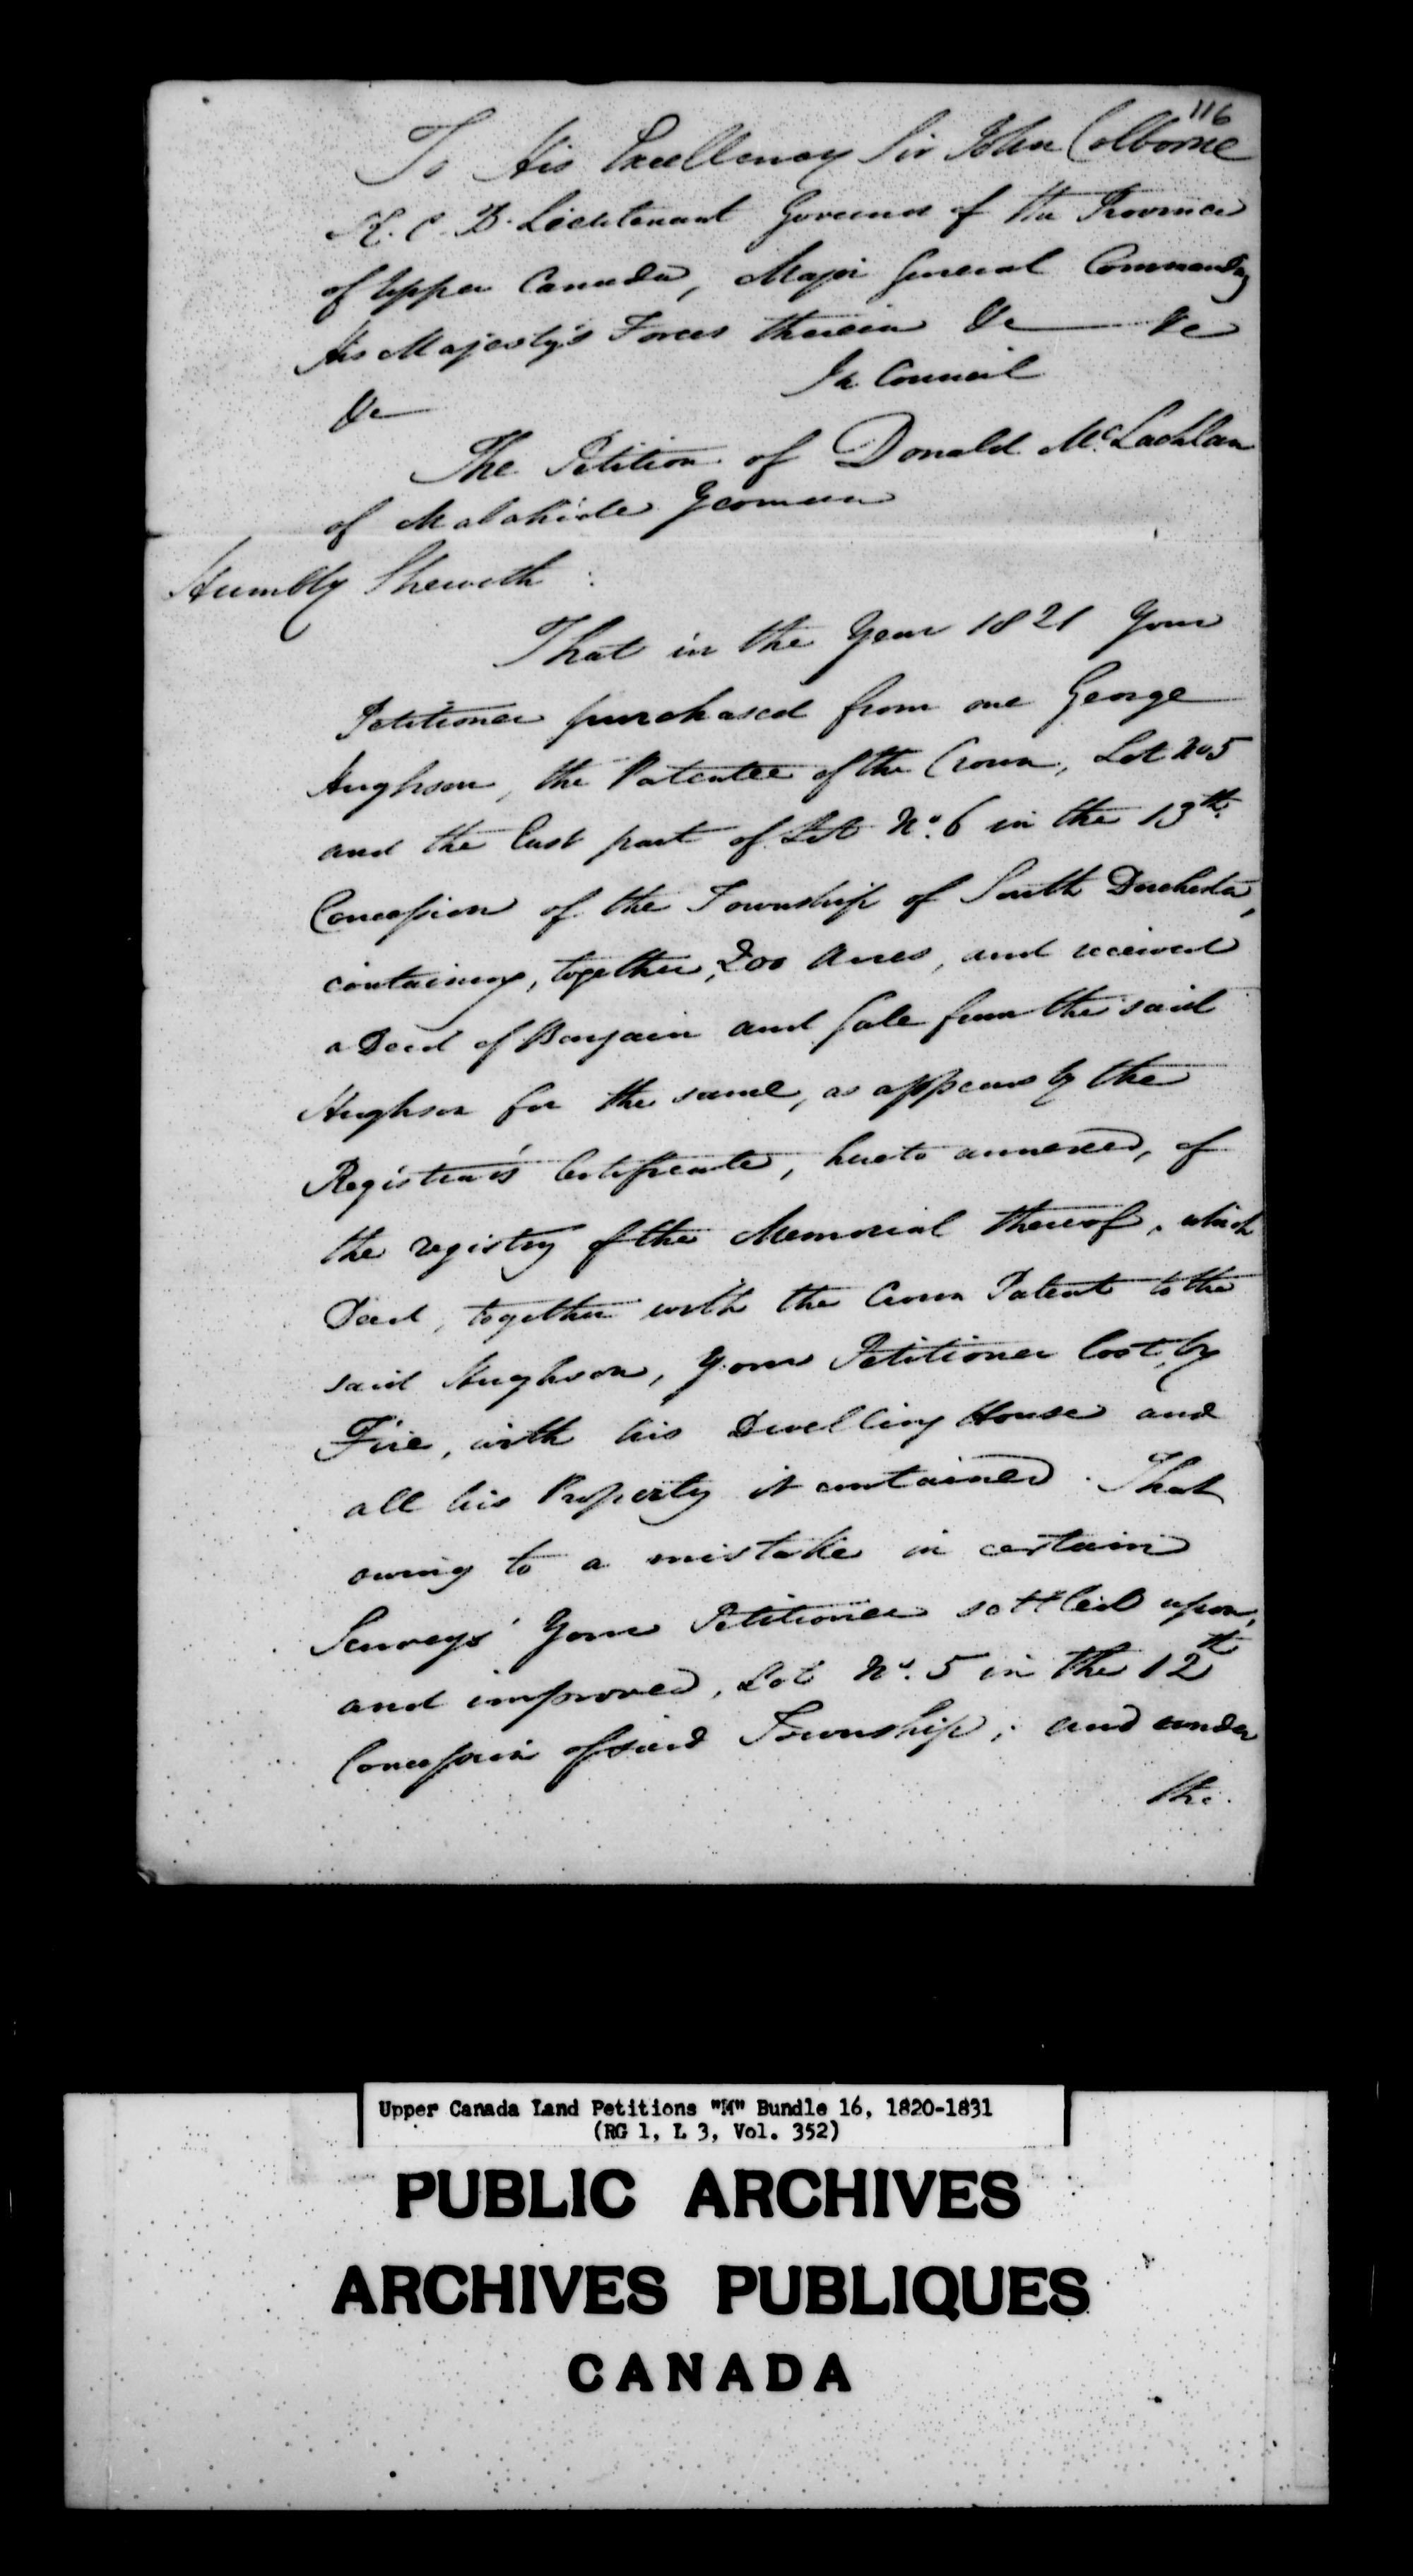 116
To His Excellency Sir John Colborne
K. C. B. Lieutenant Governor of the Province
of Upper Canada, Major General Commanding
His Majesty's Forces therein &c &c
&c In Council
The Petition of Donald McLachlan
of Malahide Yeoman
Humbly Sheweth :
That in the Year 1821 Your
Petitioner purchased from one George
Hughson, the Patentee of the Crown, Lot No 5
and the East part of Lot No. 6 in the 13th
Concession of the Township of South Dorchester,
containing, together, 200 Acres, and received
a Deed of Bargain and Sale from the said
Hughson for the same, as appears by the
Registrar's Certificate, hereto annexed, of
the registry of the Memorial thereof, which
Deed, together with the Crown Patent to the
said Hughson, Your Petitioner lost by
Fire, with his Dwelling House and
all his Property it contained. That
owing to a mistake in certain
Surveys Your Petitioner settled upon,
and improved, Lot No. 5 in the 12th
Concession of said Township; and under
the
Upper Canada Land Petitions "M" Bundle 16, 1820-1831
(RG 1, L 3, Vol. 352)
PUBLIC ARCHIVES
ARCHIVES PUBLIQUES
CANADA